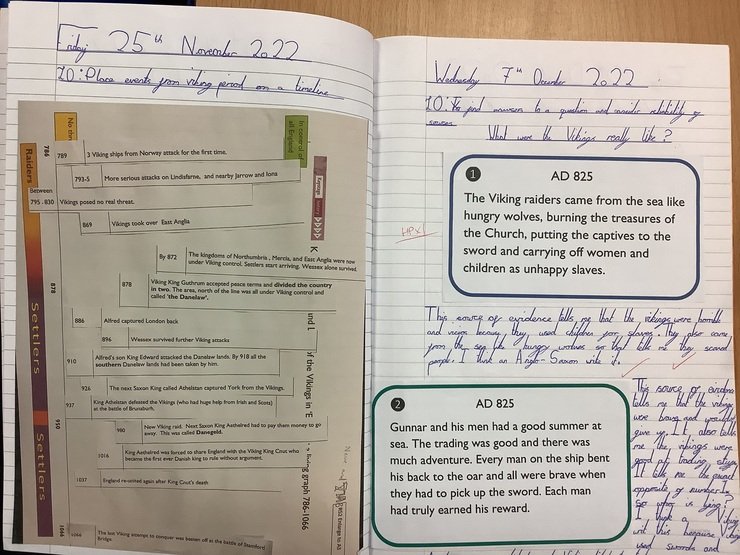 Friday 25th November 2022
LO: Place events from viking period on a timeline
No
In control of
all England
786
Raiders
789 3 Viking ships from Norway attack for the first time.
793-5 More serious attacks on Lindisfarne, and nearby Jarrow and Iona
Between
795 - 830 Vikings posed no real threat.
869 Vikings took over East Anglia
By 872 The kingdoms of Northumbria, Mercia, and East Anglia were now
under Viking control. Settlers start arriving. Wessex alone survived.
878
878 Viking King Guthrum accepted peace terms and divided the country
in two. The area, north of the line was all under Viking control and
called 'the Danelaw'.
Settlers
886 Alfred captured London back
896 Wessex survived further Viking attacks
910 Alfred's son King Edward attacked the Danelaw lands. By 918 all the
southern Danelaw lands had been taken by him.
926 The next Saxon King called Athelstan captured York from the Vikings.
937 King Athelstan defeated the Vikings (who had huge help from Irish and Scots)
at the battle of Brunaburh.
950
980 New Viking raid. Next Saxon King Aethelred had to pay them money to go
away. This was called Danegeld.
Settlers
1016 King Aethelred was forced to share England with the Viking King Cnut who
became the first ever Danish king to rule without argument.
1037 England re-united again after King Cnut's death
1066
1066 The last Viking attempt to conquer was beaten off at the battle of Stamford
Bridge.
if the Vikings in
graph 786-1066
Enlarge to A3
Wednesday 7th December 2022
LO: To find answers to a question and consider reliability of
sources
What were the Vikings really like?
1 AD 825
The Viking raiders came from the sea like
hungry wolves, burning the treasures of
the Church, putting the captives to the
sword and carrying off women and
children as unhappy slaves.
This source of evidence tells me that the vikings were horrible
and because they used children for slaves. They also came
from the sea like hungry wolves so that tells me they scared
people. I think an Anglo-Saxon write it.
2 AD 825
Gunnar and his men had a good summer at
sea. The trading was good and there was
much adventure. Every man on the ship bent
his back to the oar and all were brave when
they had to pick up the sword. Each man
had truly earned his reward.
This source of evidence
tells me that the vikings
were brave and
give up. It also tells
me the vikings were
good at trading
It tells me the
opposite of number 1
So who is lying?
I think a Viking
this because
used swords and